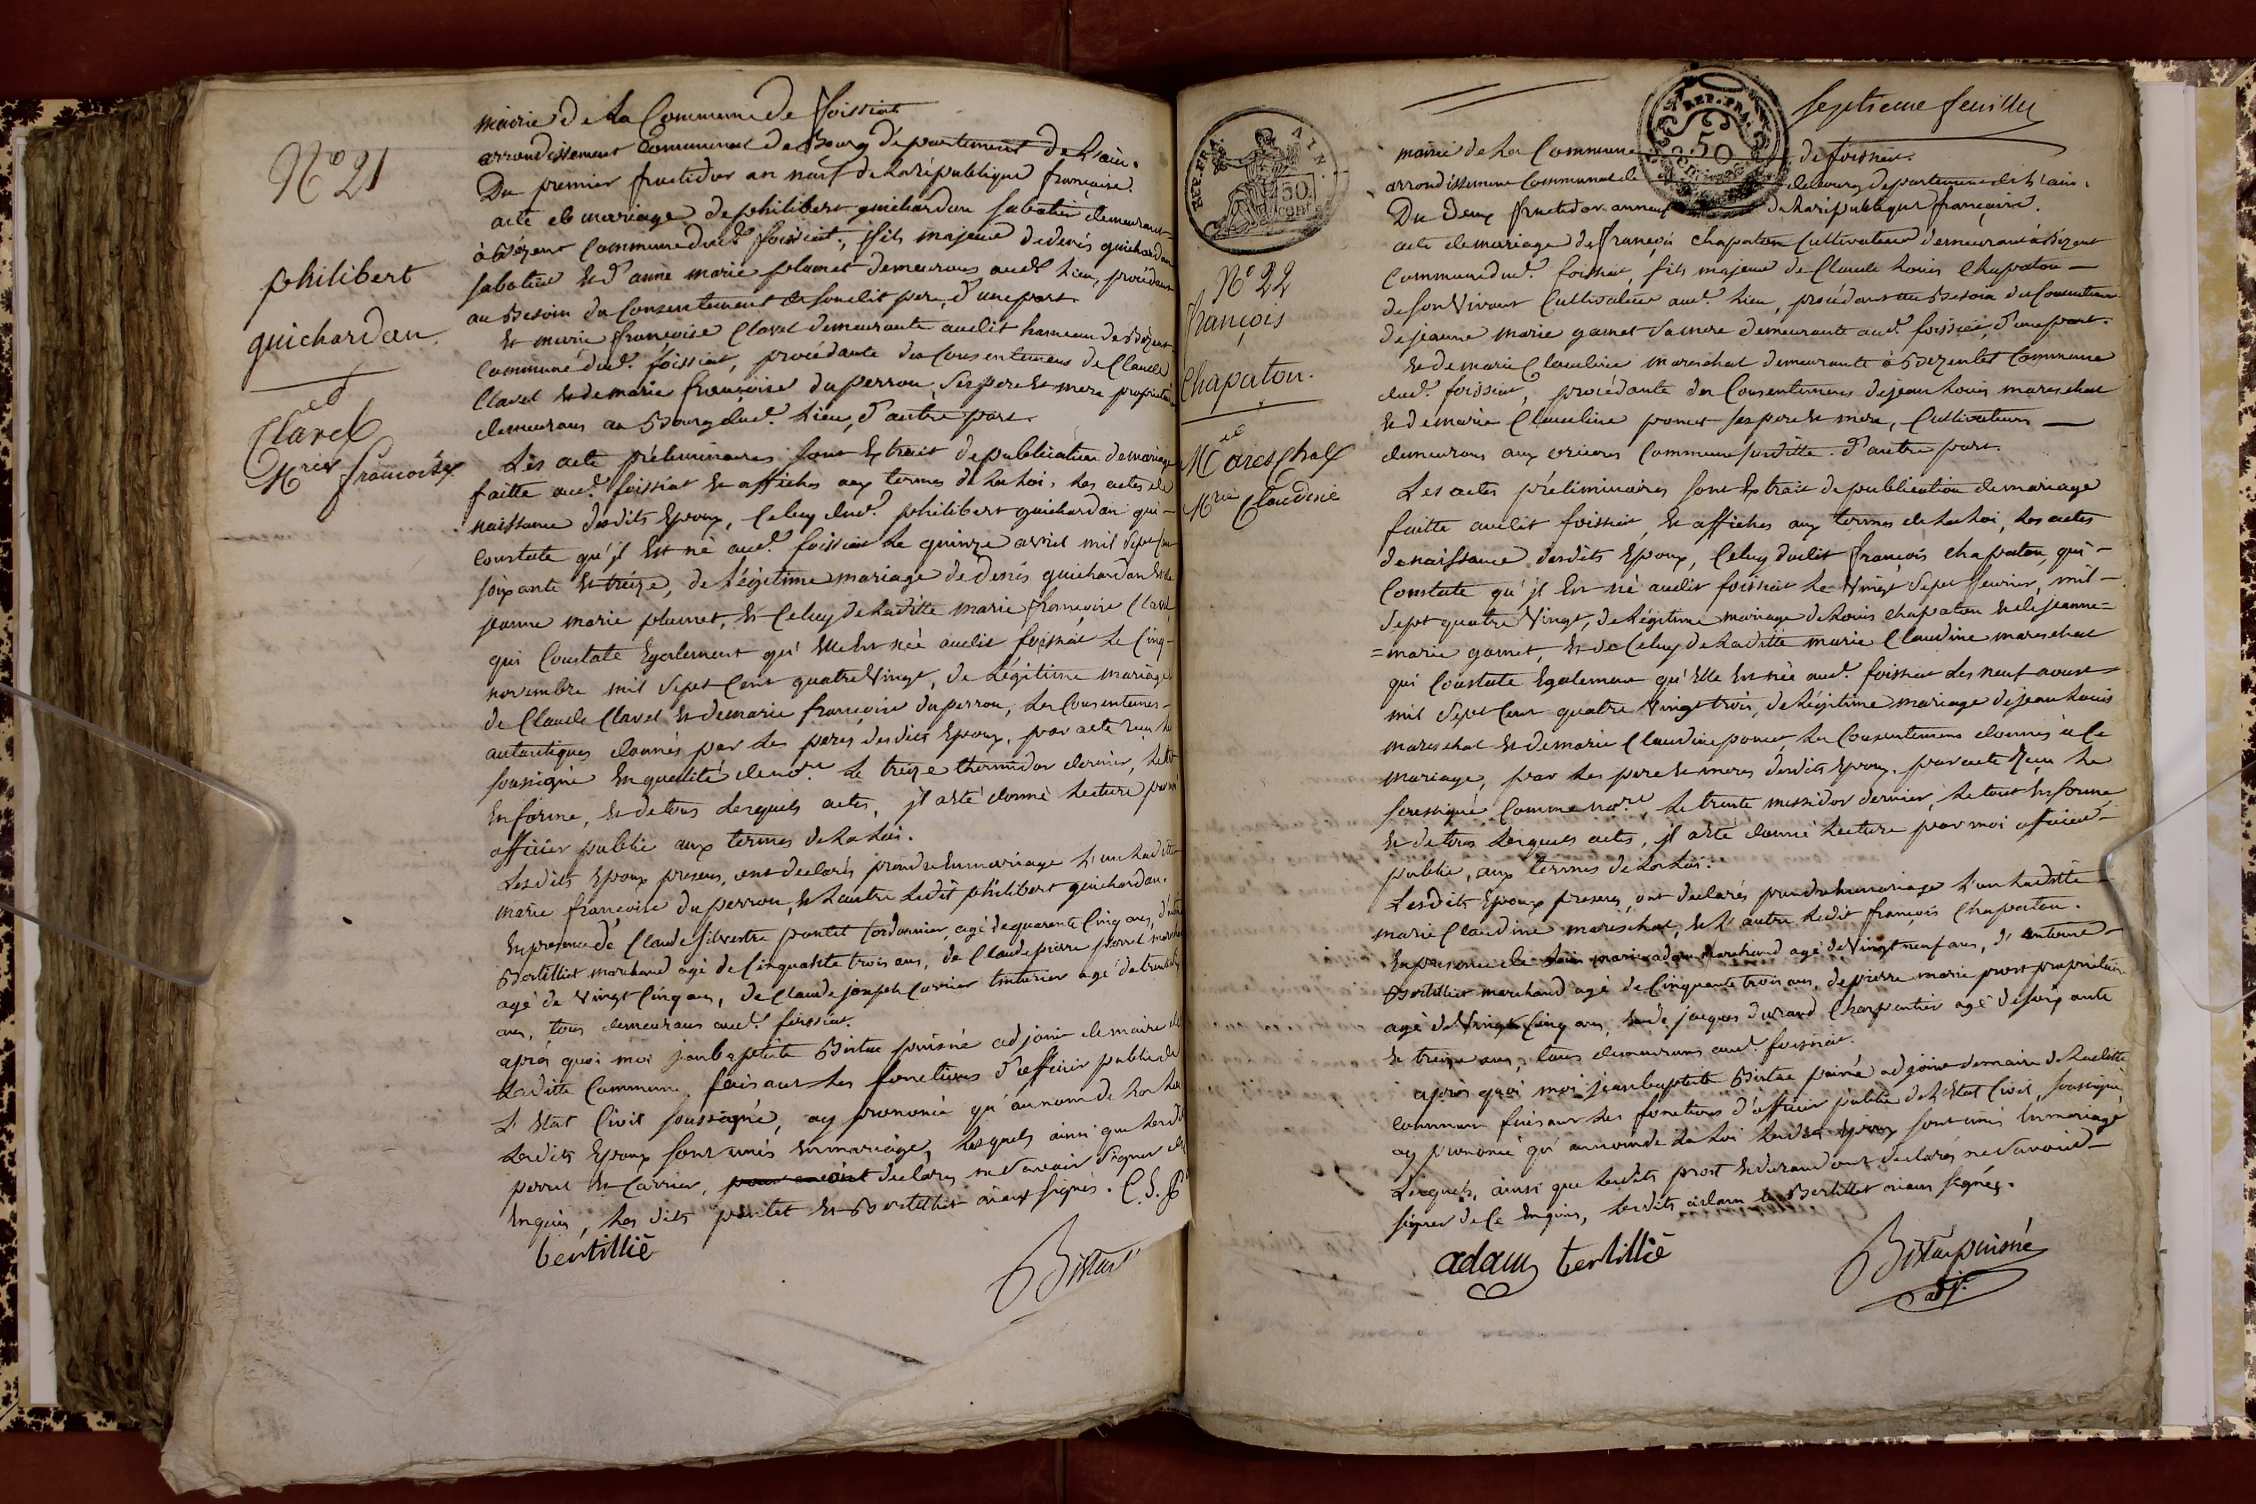 mairie de La Commune de foissiat
arrondissement Communal de Bourg département de L'ain.
Du premier fructidor an neuf de La république française.
acte de mariage de philibert guichardan sabotier demeurant
à Bézent Commune dud.t foissiat, fils majeur de denis guichardan
sabotier et d'anne marie plumet demeurans aud.t Lieu, procédant
au Besoin du Consentement de sondit pere, d'une part.
Et marie françoise Clavel demeurante audit hameau de Bezent
Commune dud.t foissiat, procédante du Consentement de Claude
Clavel et de marie françoise duperrou, ses pere et mere propriétaires
demeurans au Bourg dud.t Lieu, d'autre part.
Les acte préliminaires sont Extrait de publication de mariage
faitte aud.t foissiat et affiches aux termes de La Loi, Les actes de
naissance desdits Epoux, Celuy dud.t philibert guichardan qui-
Constate qu'jl Est né aud.t foissiat Le quinze avril mil Sept Cent
soixante Et treize, de Légitime mariage de denis guichardan Et de
jeanne marie plumet, Et Celuy de Laditte marie françoise Clavel,
qui Constate Egalement qu'Elle Est née audit foissiat Le Cinq-
novembre mil Sept Cent quatre Vingt, de Légitime mariage
de Claude Clavel Et de marie françoise duperrou, Les Consentemens
autentiques donnés par Les peres desdits Epoux, par acte reçu Le
soussigné En qualité de no.re Le treize thermidor dernier, Le tout
En forme, Et de tous Lesquels actes, jl a eté donné Lecture par moi
officier public aux termes de La Loi.
Lesdits Epoux presens, ont declarés prendre En mariage L'un Laditte
marie francoise duperrou, Et Lautre Ledit philibert guichardan.
En presence de Claude Silvestre pontet Cordonnier, agé de quarente Cinq ans, d'antoine
Bertillier marchand agé de Cinquante trois ans, de Claude pierre perret marchand
agé de Vingt Cinq ans, de Claude joseph Carrier tinturier agé de trente
ans, tous demeurans aud.t foissiat.
après quoi moi jean baptiste Bistac puisné adjoint de maire de
Laditte Commune, faisant Les fonctions d'officier public de
L'Etat Civil soussigné, ay prononcé qu'au nom de La Loi
Lesdits Epoux sont unis En mariage, Lesquels ainsi que Lesdits
perret Et Carrier, ont declarés ne Savoir Signer de
Enquis, Les dits pontet Et Bertillier aiant signés.
bertillié
Bistac
N.o 21
philibert
guichardan
et
Clavel
M.rie françoise
septieme feuillet
REP. FRA.
50
REP. FRA. AIN.
50 cent
mairie de La Commune de foissiat.
arrondissement Communal de de bourg departement de L'ain.
Du Deux fructidor an neuf de La république française.
acte de mariage de françois chapaton Cultivateur demeurant à Bézent
Commune dud.t foissiat, fils majeur de Claude Louis Chapaton –
de son Vivant Cultivateur aud.t Lieu, procédant au Besoin du Consentement
de jeanne marie gamet sa mere demeurante aud.t foissiat, d'une part.
Et de marie Claudine mareschal demeurante à Bezenlet Commune
dud.t foissiat, procédante du Consentement de jean Louis mareschal
Et de marie Claudine poncet ses pere Et mere, Cultivateurs –
demeurans aux Commune susditte. d'autre part.
Les actes préliminaires sont Extrait de publication de mariage
faitte audit foissiat, Et affiches aux termes de La Loi, Les actes
de naissance desdits Epoux, Celuy dudit françois chapaton, qui –
Constate qu'jl Est né audit foissiat Le Vingt Sept fevrier, mil –
Sept quatre Vingt, de Légitime mariage de Louis chapaton Et de jeanne=
=marie gamet, Et de Celuy de Laditte marie Claudine mareschal
qui Constate Egalement qu'Elle Est née aud.t foissiat Les neuf aoust
mil Sept Cent quatre Vingt trois, de Légitime mariage de jean Louis
mareschal Et de marie Claudine poncet, Les Consentemens donnés à Ce
mariage, par Les pere Et meres desdits Epoux, par acte Reçu Le
soussigné Comme no.re Le trente messidor dernier, Le tout En forme,
Et de tous Lesquels actes, jl a eté donné Lecture par moi officier –
public, aux termes de La Loi.
Lesdits Epoux presens, ont declarés prendre En mariage L'un Laditte
marie Claudine mareschal, Et L'autre Ledit françois Chapaton.
En presence de marie adam Marchand agé de Vingt neuf ans, d'antoine –
Bertillier marchand agé de Cinquante trois ans, de pierre marie prost propriétaire
agé de Vingt Cinq ans, Et de jacques durand Charpentier agé de soixante
Et treize ans, tous demeurans aud.t foissiat.
après quoi moi jean baptiste Bistac puiné adjoint de maire de Laditte
Commune faisant Les fonctions d'officier public de L'Etat Civil, soussigné,
ay prononcé qu'au nom de La Loi Lesdits Epoux sont unis En mariage
Lesquels, ainsi que Lesdits prost Et durand ont declarés ne Savoir –
signer de Ce Enquis, Lesdits adam Et Bertillet aians signés.
adam bertillié
Bistac puisné
adj.
N.o 22
François
Chapaton.
et
Mareschal
M.rie Claudine